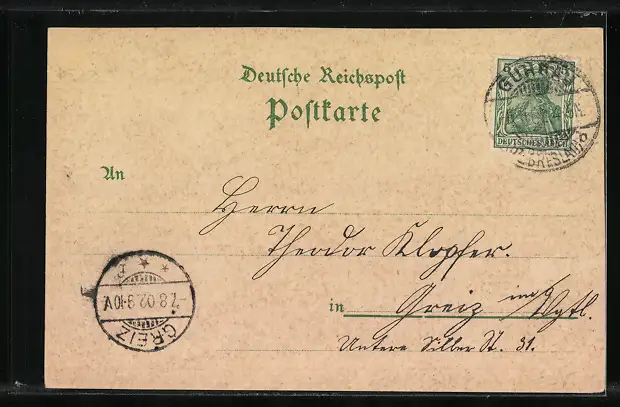 Deutsche Reichspost
Postkarte
GUHRAU
BRESLAU
DEUTSCHES REICH
An
Herrn
Theodor Klopfer.
in Greiz im Vgtl.
Untere Silber St. 31.
GREIZ
7.8.02.9-10V.